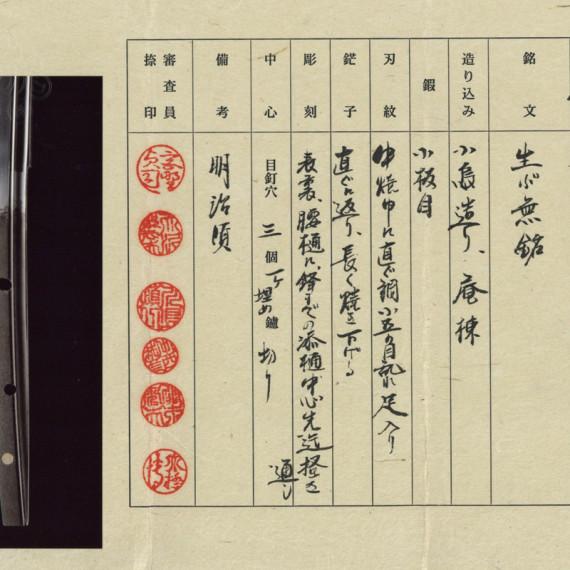 銘文
生ぶ無銘
造り込み
小烏造り、庵棟
鍜
小板目
刃紋
中焼巾に直ぐ調小五の目乱れ足入り
鋩子
直ぐに返り、長く焼き下げる
彫刻
表裏、腰樋に、鋒までの添樋中心先迄掻き通し
中心
目釘穴 三個 一ケ埋め 鑢 切り
備考
明治頃
審査員
捺印